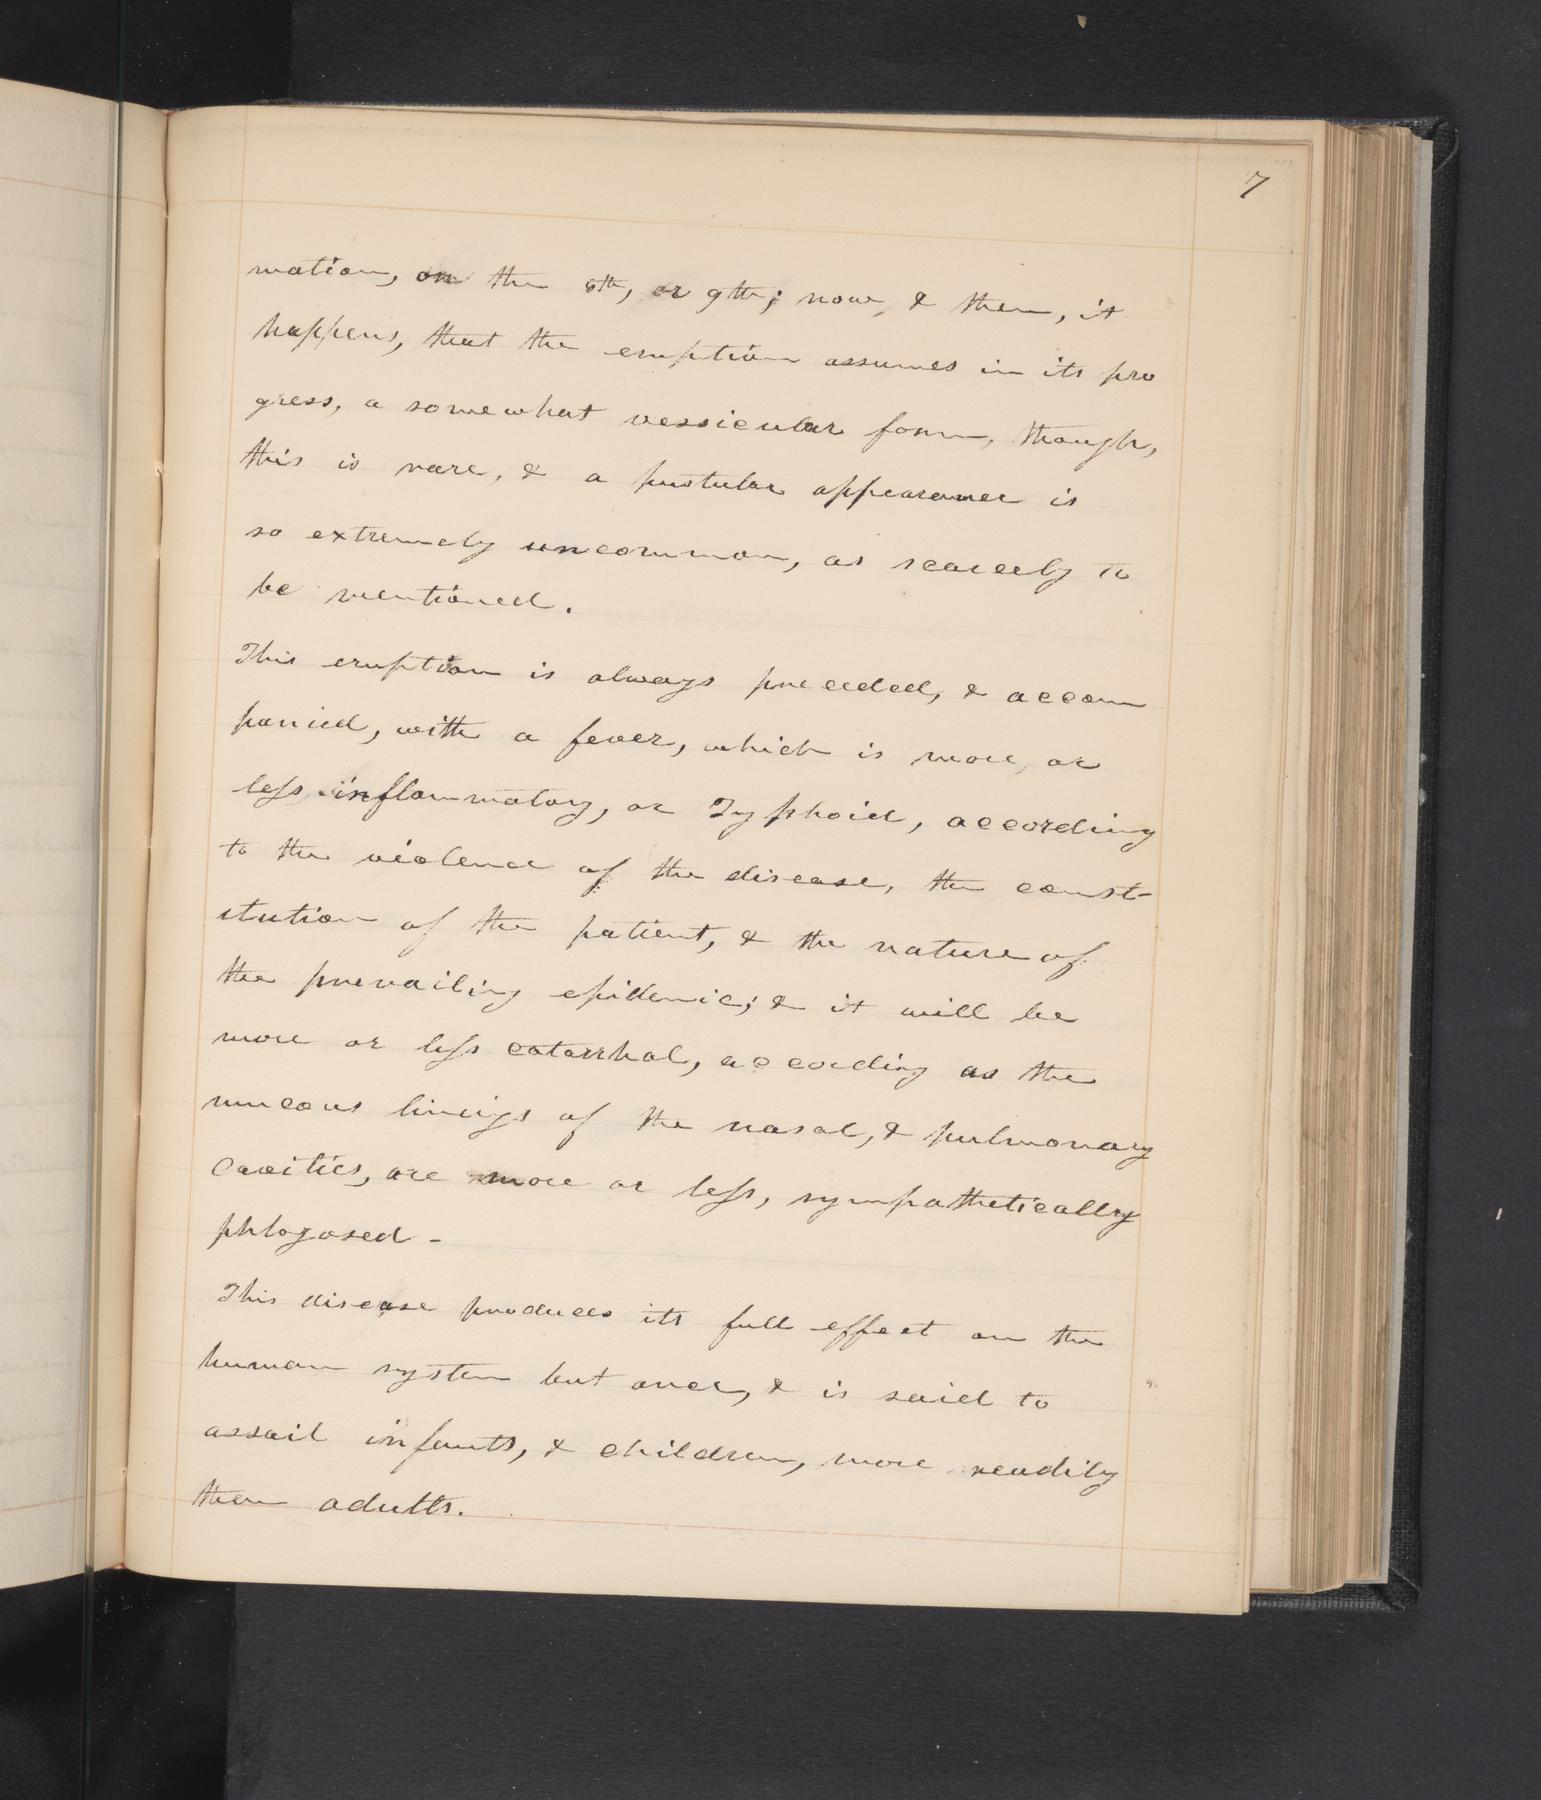 7
mation, on the 8th, or 9th; now, & then, it
happens, that the eruption assumes in its pro
gress, a somewhat vessicular form, though,
this is rare, & a pustular appearance is
so extremely uncommon, as scarcely to
be mentioned.
This eruption is always preceded, & accom
panied, with a fever, which is more, or
less, inflammatory, or Typhoid, according
to the violence of the disease, the const-
itution of the patient, & the nature of
the prevailing epidemic; & it will be
more or less catarrhal, according as the
mucous linings of the nasal, & pulmonary
cavities, are more or less, sympathetically
phlogosed -
This disease produces its full effect on the
human system but once, & is said to
assail infants, & children, more readily
then adults.